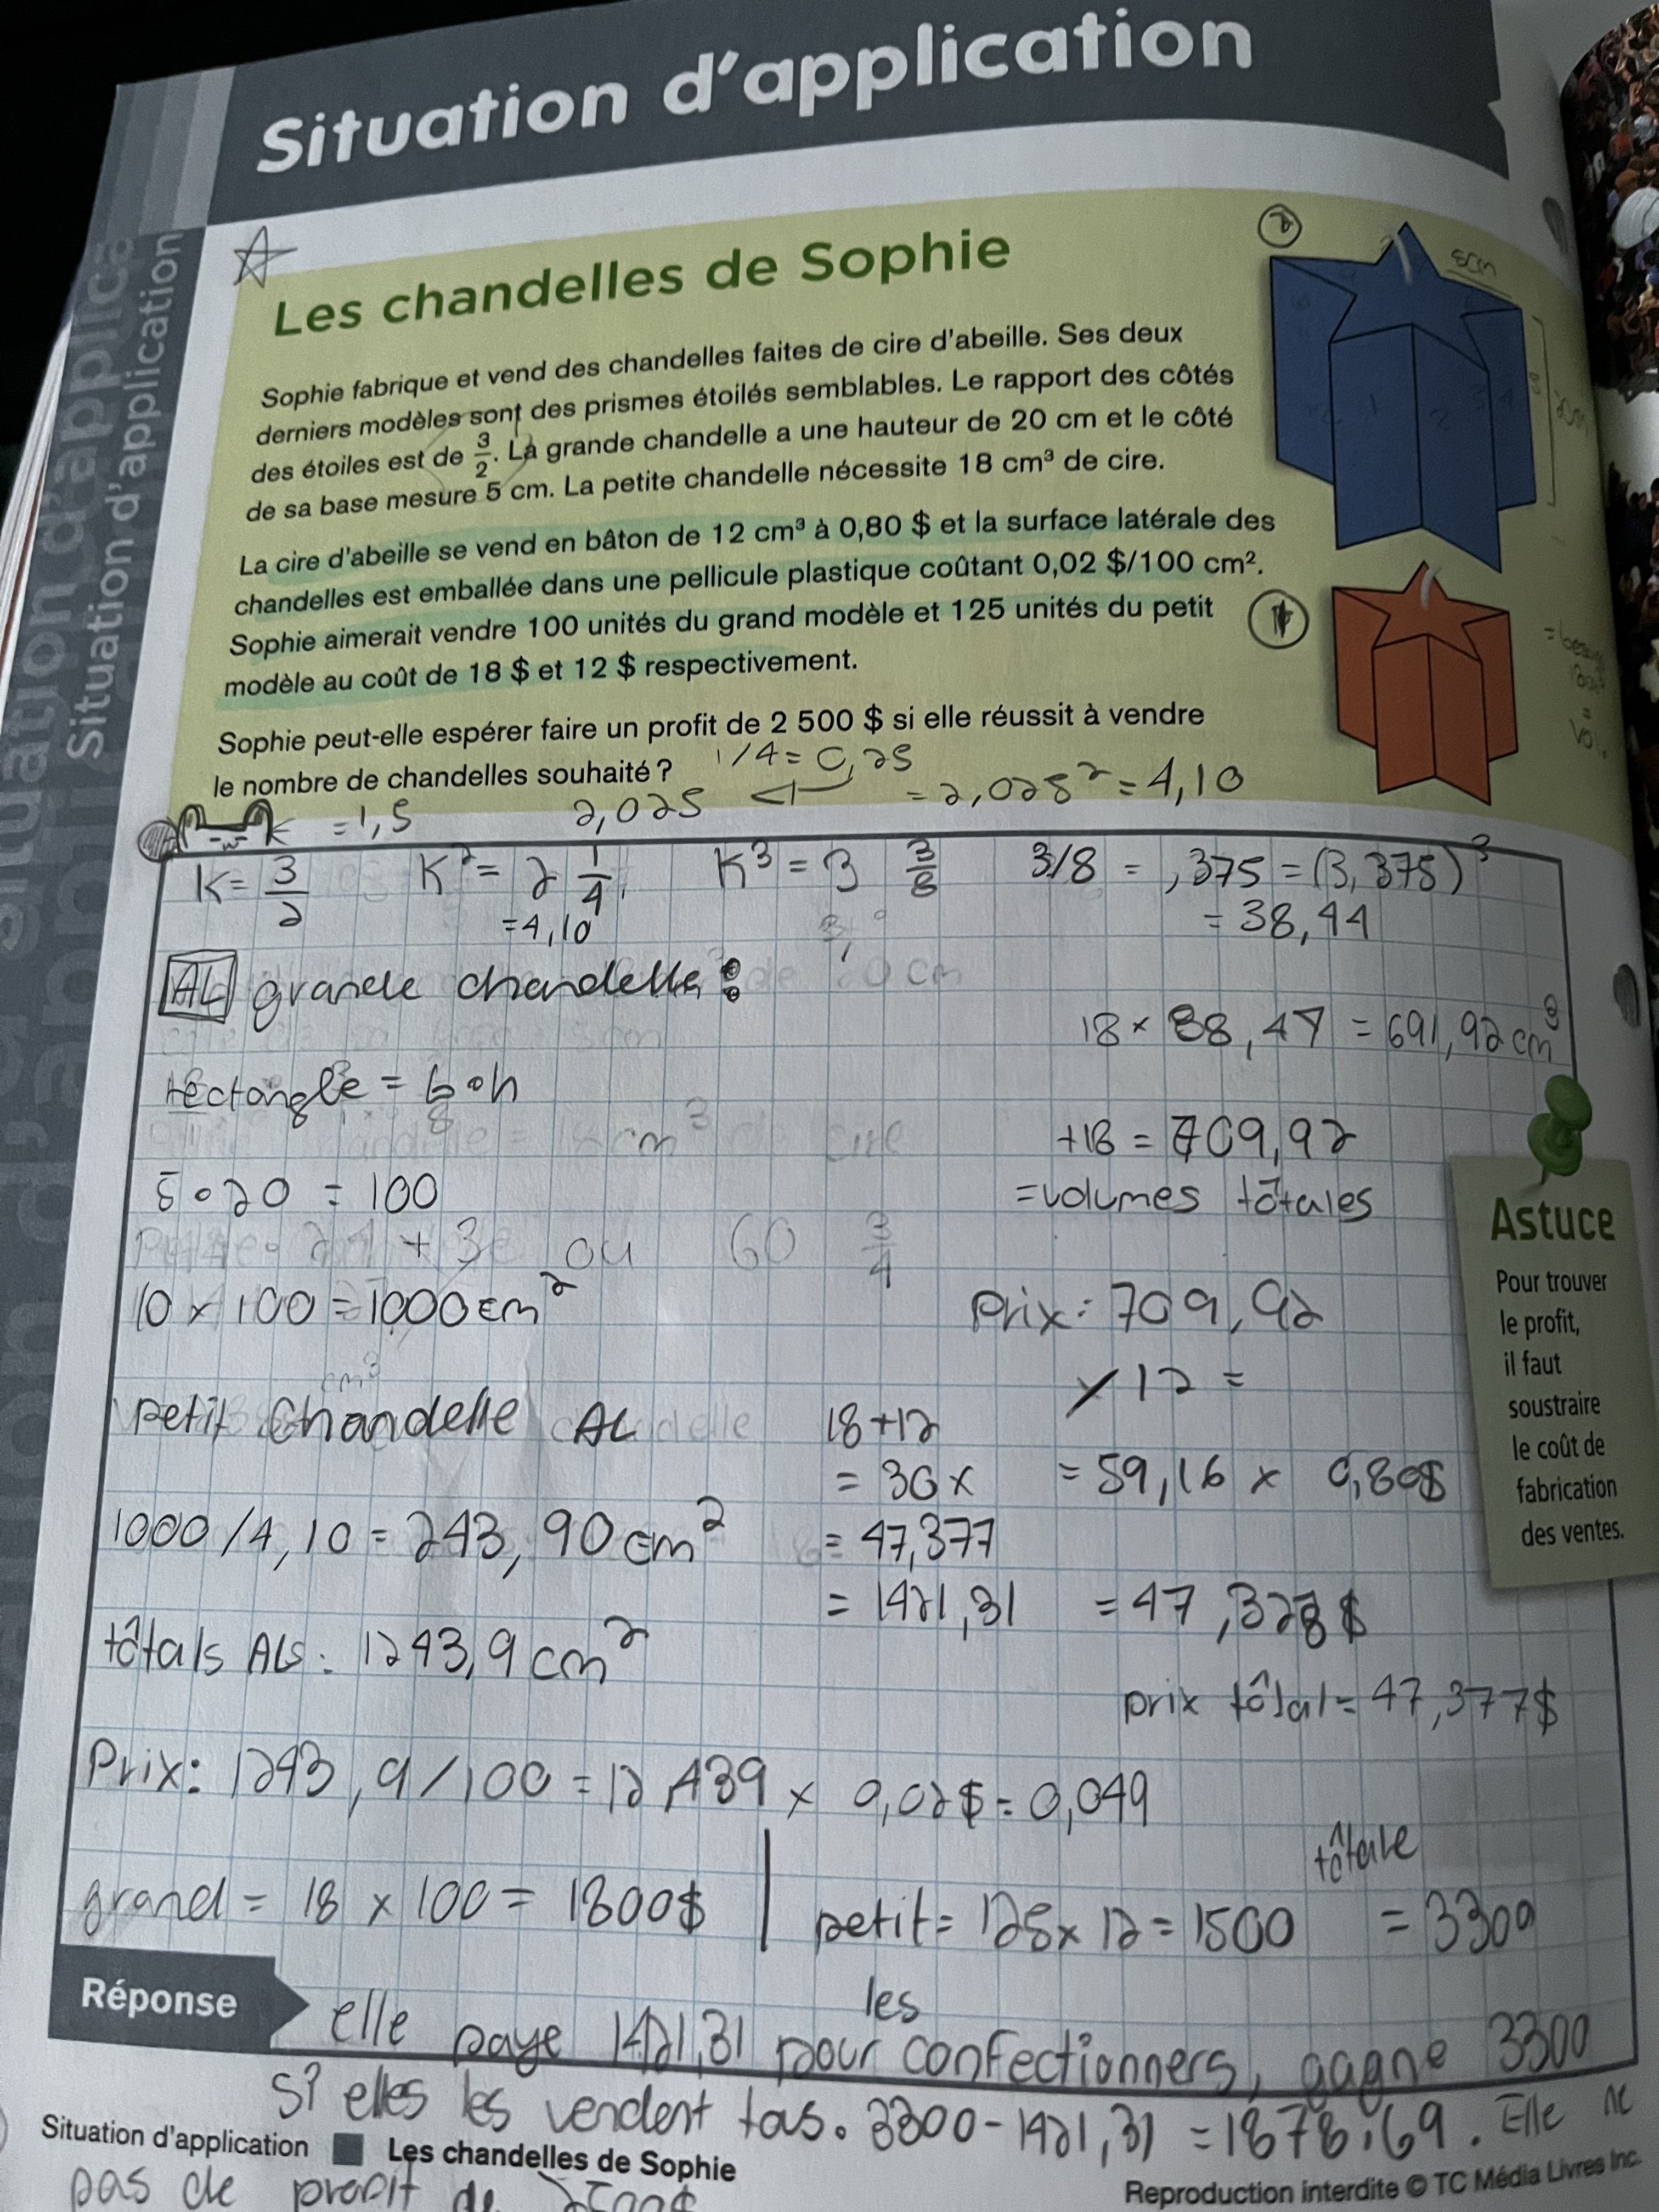 Situation d'application
Situation d'applica
Situation d'application
Les chandelles de Sophie
Sophie fabrique et vend des chandelles faites de cire d'abeille. Ses deux
derniers modèles sont des prismes étoilés semblables. Le rapport des côtés
des étoiles est de 3/2. La grande chandelle a une hauteur de 20 cm et le côté
de sa base mesure 5 cm. La petite chandelle nécessite 18 cm³ de cire.
La cire d'abeille se vend en bâton de 12 cm³ à 0,80 $ et la surface latérale des
chandelles est emballée dans une pellicule plastique coûtant 0,02 $/100 cm².
Sophie aimerait vendre 100 unités du grand modèle et 125 unités du petit
modèle au coût de 18 $ et 12 $ respectivement.
Sophie peut-elle espérer faire un profit de 2 500 $ si elle réussit à vendre
le nombre de chandelles souhaité ?
5cm
1/4 = 0,25
= 1,5
2,025
= 2,025² = 4,10
K = 3/2
K² = 2 1/4
= 4,10
K³ = 3 3/8
3/8 = ,375 = (3,375)³
= 38,44
AL grande chandelle :
18 × 38,44 = 691,92 cm³
rectangle = b•h
+18 = 709,92
5•20 = 100
= volumes tôtales
10 × 100 = 1000 cm²
Prix: 709,92
/12 =
petit Chandelle AL
18+12
= 30 x
= 59,16 x 0,80$
1000 / 4,10 = 243,90 cm²
= 47,377
= 1421,31
= 47,328 $
tôtals ALs: 1243,9 cm²
prix tôtal = 47,377$
Prix: 1243,9/100 = 12,439 x 0,02$ = 0,049
grand = 18 x 100 = 1800$
petit = 125 x 12 = 1500
tôtale
= 3300
Astuce
Pour trouver
le profit,
il faut
soustraire
le coût de
fabrication
des ventes.
Réponse
elle paye 1421,31 pour les confectionners, gagne 3300
si elles les vendent tous. 3300 - 1421,31 = 1878,69. Elle
pas de profit de 2500$
Situation d'application
Les chandelles de Sophie
Reproduction interdite © TC Média Livres Inc.